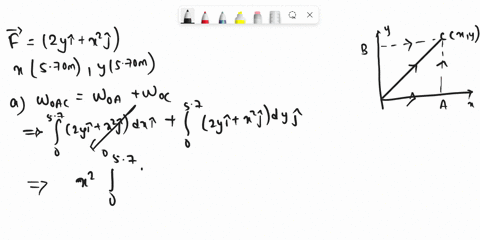 F⃗ = (2yî + x²ĵ)
x (5.70m) , y (5.70m)
a) W_OAC = W_OA + W_OC
⇒ ∫₀^5.7 (2yî + x²ĵ) dx î + ∫₀^5.7 (2yî + x²ĵ) dy ĵ
0
⇒ x² ∫₀^5.7
y
B
C (x,y)
A
x